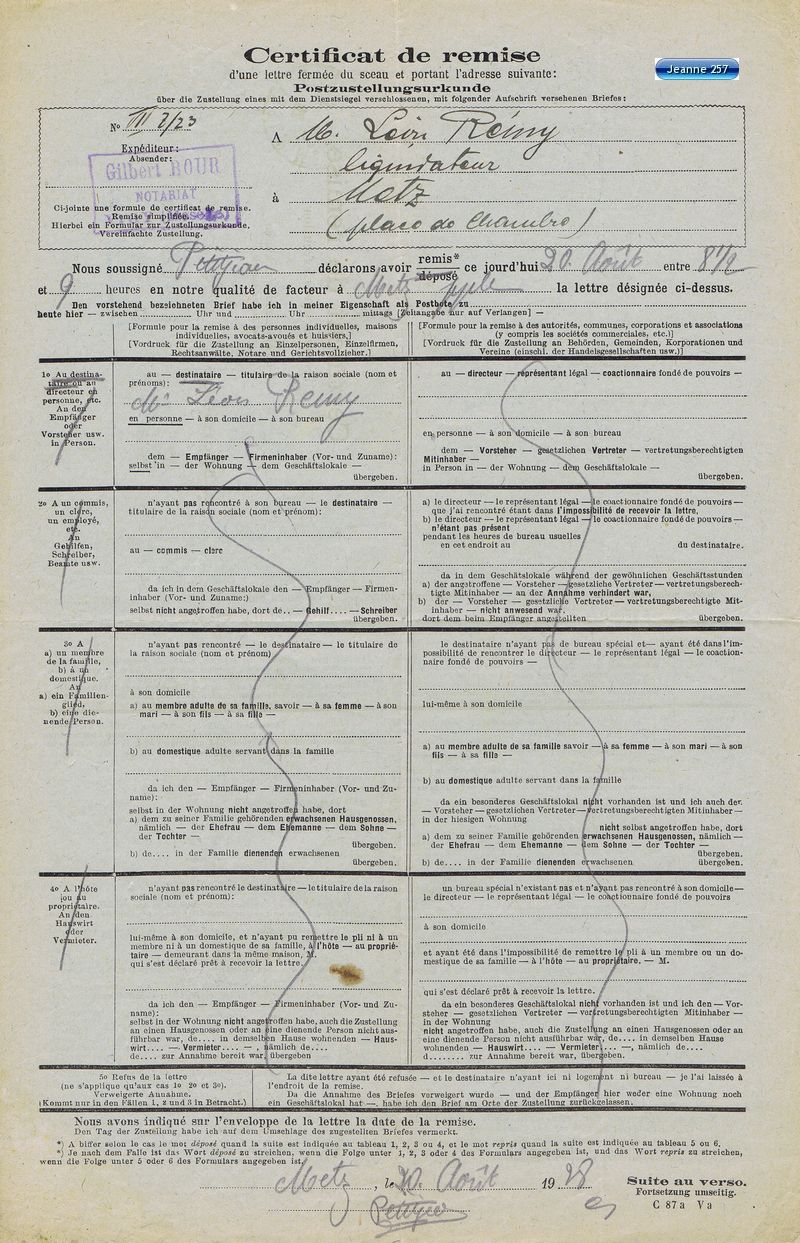 Certificat de remise
d'une lettre fermée du sceau et portant l'adresse suivante:
Postzustellungsurkunde
über die Zustellung eines mit dem Dienstsiegel verschlossenen, mit folgender Aufschrift versehenen Briefes:
Jeanne 257
No III 7/23
Expéditeur:
Absender:
Gilbert BOUR
NOTARIAT
Ci-jointe une formule de certificat de remise.
Remise simplifiée.
Hierbei ein Formular zur Zustellungsurkunde.
Vereinfachte Zustellung.
A M. Léon Rémy
liquidateur
à Metz
(place de Chambre)
Nous soussigné Petitjean déclarons avoir remis* déposé ce jourd'hui 20 Août entre 8 1/2
et 9 heures en notre qualité de facteur à Metz pple la lettre désignée ci-dessus.
Den vorstehend bezeichneten Brief habe ich in meiner Eigenschaft als Postbote zu
heute hier — zwischen Uhr und Uhr mittags [Zeitangabe nur auf Verlangen] —
[Formule pour la remise à des personnes individuelles, maisons
individuelles, avocats-avoués et huissiers.]
[Vordruck für die Zustellung an Einzelpersonen, Einzelfirmen,
Rechtsanwälte, Notare und Gerichtsvollzieher.]
[Formule pour la remise à des autorités, communes, corporations et associations
(y compris les sociétés commerciales, etc.)]
[Vordruck für die Zustellung an Behörden, Gemeinden, Korporationen und
Vereine (einschl. der Handelsgesellschaften usw.)]
1o Au destina-
taire ou au
directeur en
personne, etc.
An den
Empfänger
oder
Vorsteher usw.
in Person.
au — destinataire — titulaire de la raison sociale (nom et
prénoms):
Mr Léon Remy
en personne — à son domicile — à son bureau
dem — Empfänger — Firmeninhaber (Vor- und Zuname):
selbst in — der Wohnung — dem Geschäftslokale —
übergeben.
au — directeur — représentant légal — coactionnaire fondé de pouvoirs —
en personne — à son domicile — à son bureau
dem — Vorsteher — gesetzlichen Vertreter — vertretungsberechtigten
Mitinhaber —
in Person in — der Wohnung — dem Geschäftslokale —
übergeben.
2o A un commis,
un clerc,
un employé,
etc.
An
Gehilfen,
Schreiber,
Beamte usw.
n'ayant pas rencontré à son bureau — le destinataire —
titulaire de la raison sociale (nom et prénom):
au — commis — clerc
da ich in dem Geschäftslokale den — Empfänger — Firmen-
inhaber (Vor- und Zuname:)
selbst nicht angetroffen habe, dort de.. — Gehilf.... — Schreiber
übergeben.
a) le directeur — le représentant légal — le coactionnaire fondé de pouvoirs —
que j'ai rencontré étant dans l'impossibilité de recevoir la lettre,
b) le directeur — le représentant légal — le coactionnaire fondé de pouvoirs —
n'étant pas présent
pendant les heures de bureau usuelles
en cet endroit au du destinataire.
da in dem Geschätslokale während der gewöhnlichen Geschäftsstunden
a) der angetroffene — Vorsteher — gesetzliche Vertreter — vertretungsberech-
tigte Mitinhaber — an der Annahme verhindert war,
b) der — Vorsteher — gesetzliche Vertreter — vertretungsberechtigte Mit-
inhaber — nicht anwesend war,
dort dem beim Empfänger angestellten übergeben.
3o A
a) un membre
de la famille,
b) à un
domestique.
An
a) ein Familien-
glied,
b) eine die-
nende Person.
n'ayant pas rencontré — le destinataire — le titulaire de
la raison sociale (nom et prénom)
à son domicile
a) au membre adulte de sa famille, savoir — à sa femme — à son
mari — à son fils — à sa fille —
b) au domestique adulte servant dans la famille
da ich den — Empfänger — Firmeninhaber (Vor- und Zu-
name):
selbst in der Wohnung nicht angetroffen habe, dort
a) dem zu seiner Familie gehörenden erwachsenen Hausgenossen,
nämlich — der Ehefrau — dem Ehemanne — dem Sohne —
der Tochter —
übergeben.
b) de.... in der Familie dienenden erwachsenen
übergeben.
le destinataire n'ayant pas de bureau spécial et— ayant été dans l'im-
possibilité de rencontrer le directeur — le représentant légal — le coaction-
naire fondé de pouvoirs —
lui-même à son domicile
a) au membre adulte de sa famille savoir — à sa femme — à son mari — à son
fils — à sa fille —
b) au domestique adulte servant dans la famille
da ein besonderes Geschäftslokal nicht vorhanden ist und ich auch der
— Vorsteher — gesetzlichen Vertreter — vertretungsberechtigten Mitinhaber —
in der hiesigen Wohnung
nicht selbst angetroffen habe, dort
a) dem zu seiner Familie gehörenden erwachsenen Hausgenossen, nämlich —
der Ehefrau — dem Ehemanne — dem Sohne — der Tochter —
übergeben.
b) de.... in der Familie dienenden erwachsenen übergeben.
4o A l'hôte
ou au
propriétaire.
An den
Hauswirt
oder
Vermieter.
n'ayant pas rencontré le destinataire — le titulaire de la raison
sociale (nom et prénom):
lui-même à son domicile, et n'ayant pu remettre le pli ni à un
membre ni à un domestique de sa famille, à l'hôte — au proprié-
taire — demeurant dans la même maison, M.
qui s'est déclaré prêt à recevoir la lettre.
da ich den — Empfänger — Firmeninhaber (Vor- und Zu-
name):
selbst in der Wohnung nicht angetroffen habe, auch die Zustellung
an einen Hausgenossen oder an eine dienende Person nicht aus-
führbar war, de.... in demselben Hause wohnenden — Haus-
wirt.... — Vermieter.... — , nämlich de....
de.... zur Annahme bereit war, übergeben
un bureau spécial n'existant pas et n'ayant pas rencontré à son domicile —
le directeur — le représentant légal — le coactionnaire fondé de pouvoirs
à son domicile
et ayant été dans l'impossibilité de remettre le pli à un membre ou un do-
mestique de sa famille — à l'hôte — au propriétaire. — M.
qui s'est déclaré prêt à recevoir la lettre.
da ein besonderes Geschäftslokal nicht vorhanden ist und ich den — Vor-
steher — gesetzlichen Vertreter — vertretungsberechtigten Mitinhaber —
in der Wohnung
nicht angetroffen habe, auch die Zustellung an einen Hausgenossen oder an
eine dienende Person nicht ausführbar war, de.... in demselben Hause
wohnenden — Hauswirt.... — Vermieter.... —, nämlich de....
d........ zur Annahme bereit war, übergeben.
5o Refus de la lettre
(ne s'applique qu'aux cas 1o 2o et 3o).
Verweigerte Annahme.
(Kommt nur in den Fällen 1, 2 und 3 in Betracht.)
La dite lettre ayant été refusée — et le destinataire n'ayant ici ni logement ni bureau — je l'ai laissée à
l'endroit de la remise.
Da die Annahme des Briefes verweigert wurde — und der Empfänger hier weder eine Wohnung noch
ein Geschäftslokal hat —, habe ich den Brief am Orte der Zustellung zurückgelassen.
Nous avons indiqué sur l'enveloppe de la lettre la date de la remise.
Den Tag der Zustellung habe ich auf dem Umschlage des zugestellten Briefes vermerkt.
*) A biffer selon le cas le mot déposé quand la suite est indiquée au tableau 1, 2, 3 ou 4, et le mot repris quand la suite est indiquée au tableau 5 ou 6.
*) Je nach dem Falle ist das Wort déposé zu streichen, wenn die Folge unter 1, 2, 3 oder 4 des Formulars angegeben ist, und das Wort repris zu streichen,
wenn die Folge unter 5 oder 6 des Formulars angegeben ist.
Metz, le 20 Août 1928
Petitjean
Suite au verso.
Fortsetzung umseitig.
C 87a Va